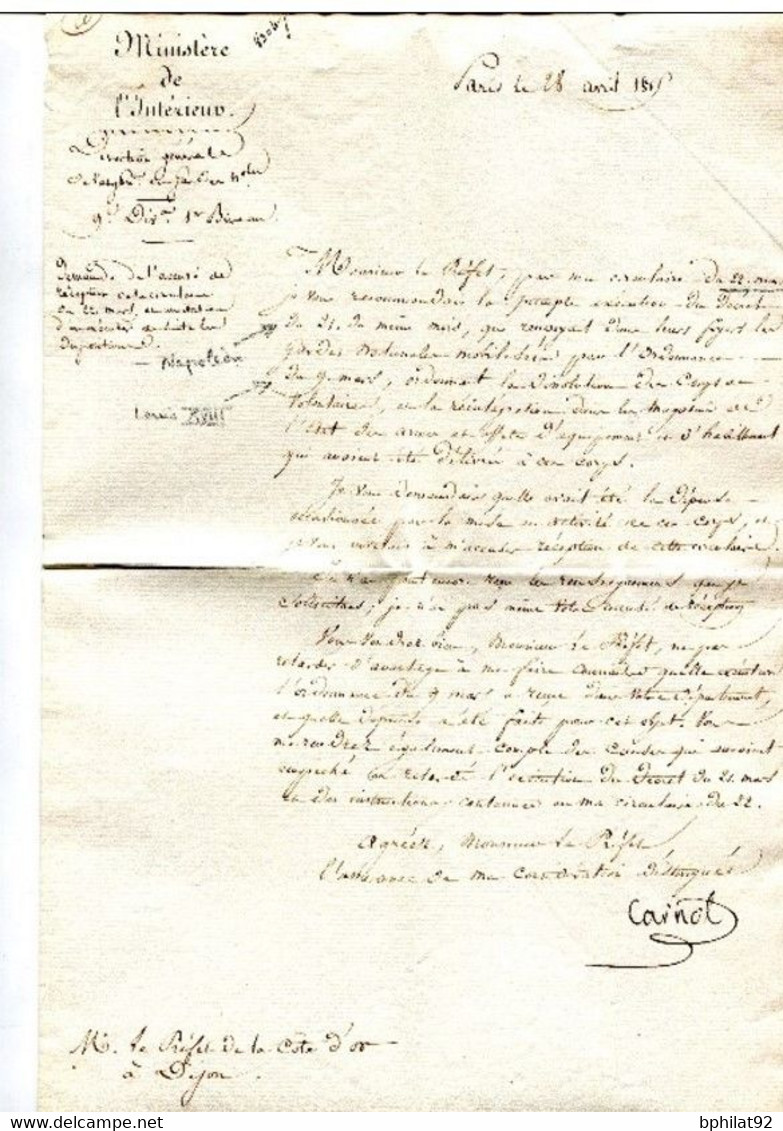 Ministère
de
l'Intérieur.
Paris le 28 avril 1815
Direction générale
9e Divon 1er Bureau
Demande de l'accusé de
réception de la circulaire
du 22 mars, et invitation
d'en exécuter de suite les
dispositions.
Napoléon
Louis XVIII
Monsieur le Préfet, par ma circulaire du 22. mars
je vous recommandais la prompte exécution du Décret
du 21. du même mois, qui renvoyait dans leurs foyers les
gardes nationales mobilisées par l'ordonnance
du 9. mars, ordonnait la dissolution des Corps de
Volontaires, et la réintégration dans les magasins de
l'Etat des armes et effets d'équipement et d'habillement
qui avaient été délivrés à ces corps.
Je vous demandais quelle avait été la dépense
occasionnée par la mise en activité de ces corps, et
je vous invitais à m'accuser réception de cette circulaire
Je n'ai point encore reçu les renseignemens que je
sollicitais; je n'ai pas même votre accusé de réception
Vous voudrez bien, Monsieur le Préfet, ne pas
retarder d'avantage à me faire connaître quelle exécution
l'ordonnance du 9 mars a reçue dans votre Département,
et quelle dépense a été faite pour cet objet. Vous
me rendrez également compte des causes qui auraient
empêché ou retardé l'exécution du Décret du 21. mars
et des instructions contenues en ma circulaire du 22.
Agréez, Monsieur le Préfet
l'assurance de ma considération distinguée
Carnot
M. le Préfet de la Cote d'or
à Dijon.
bphilat92